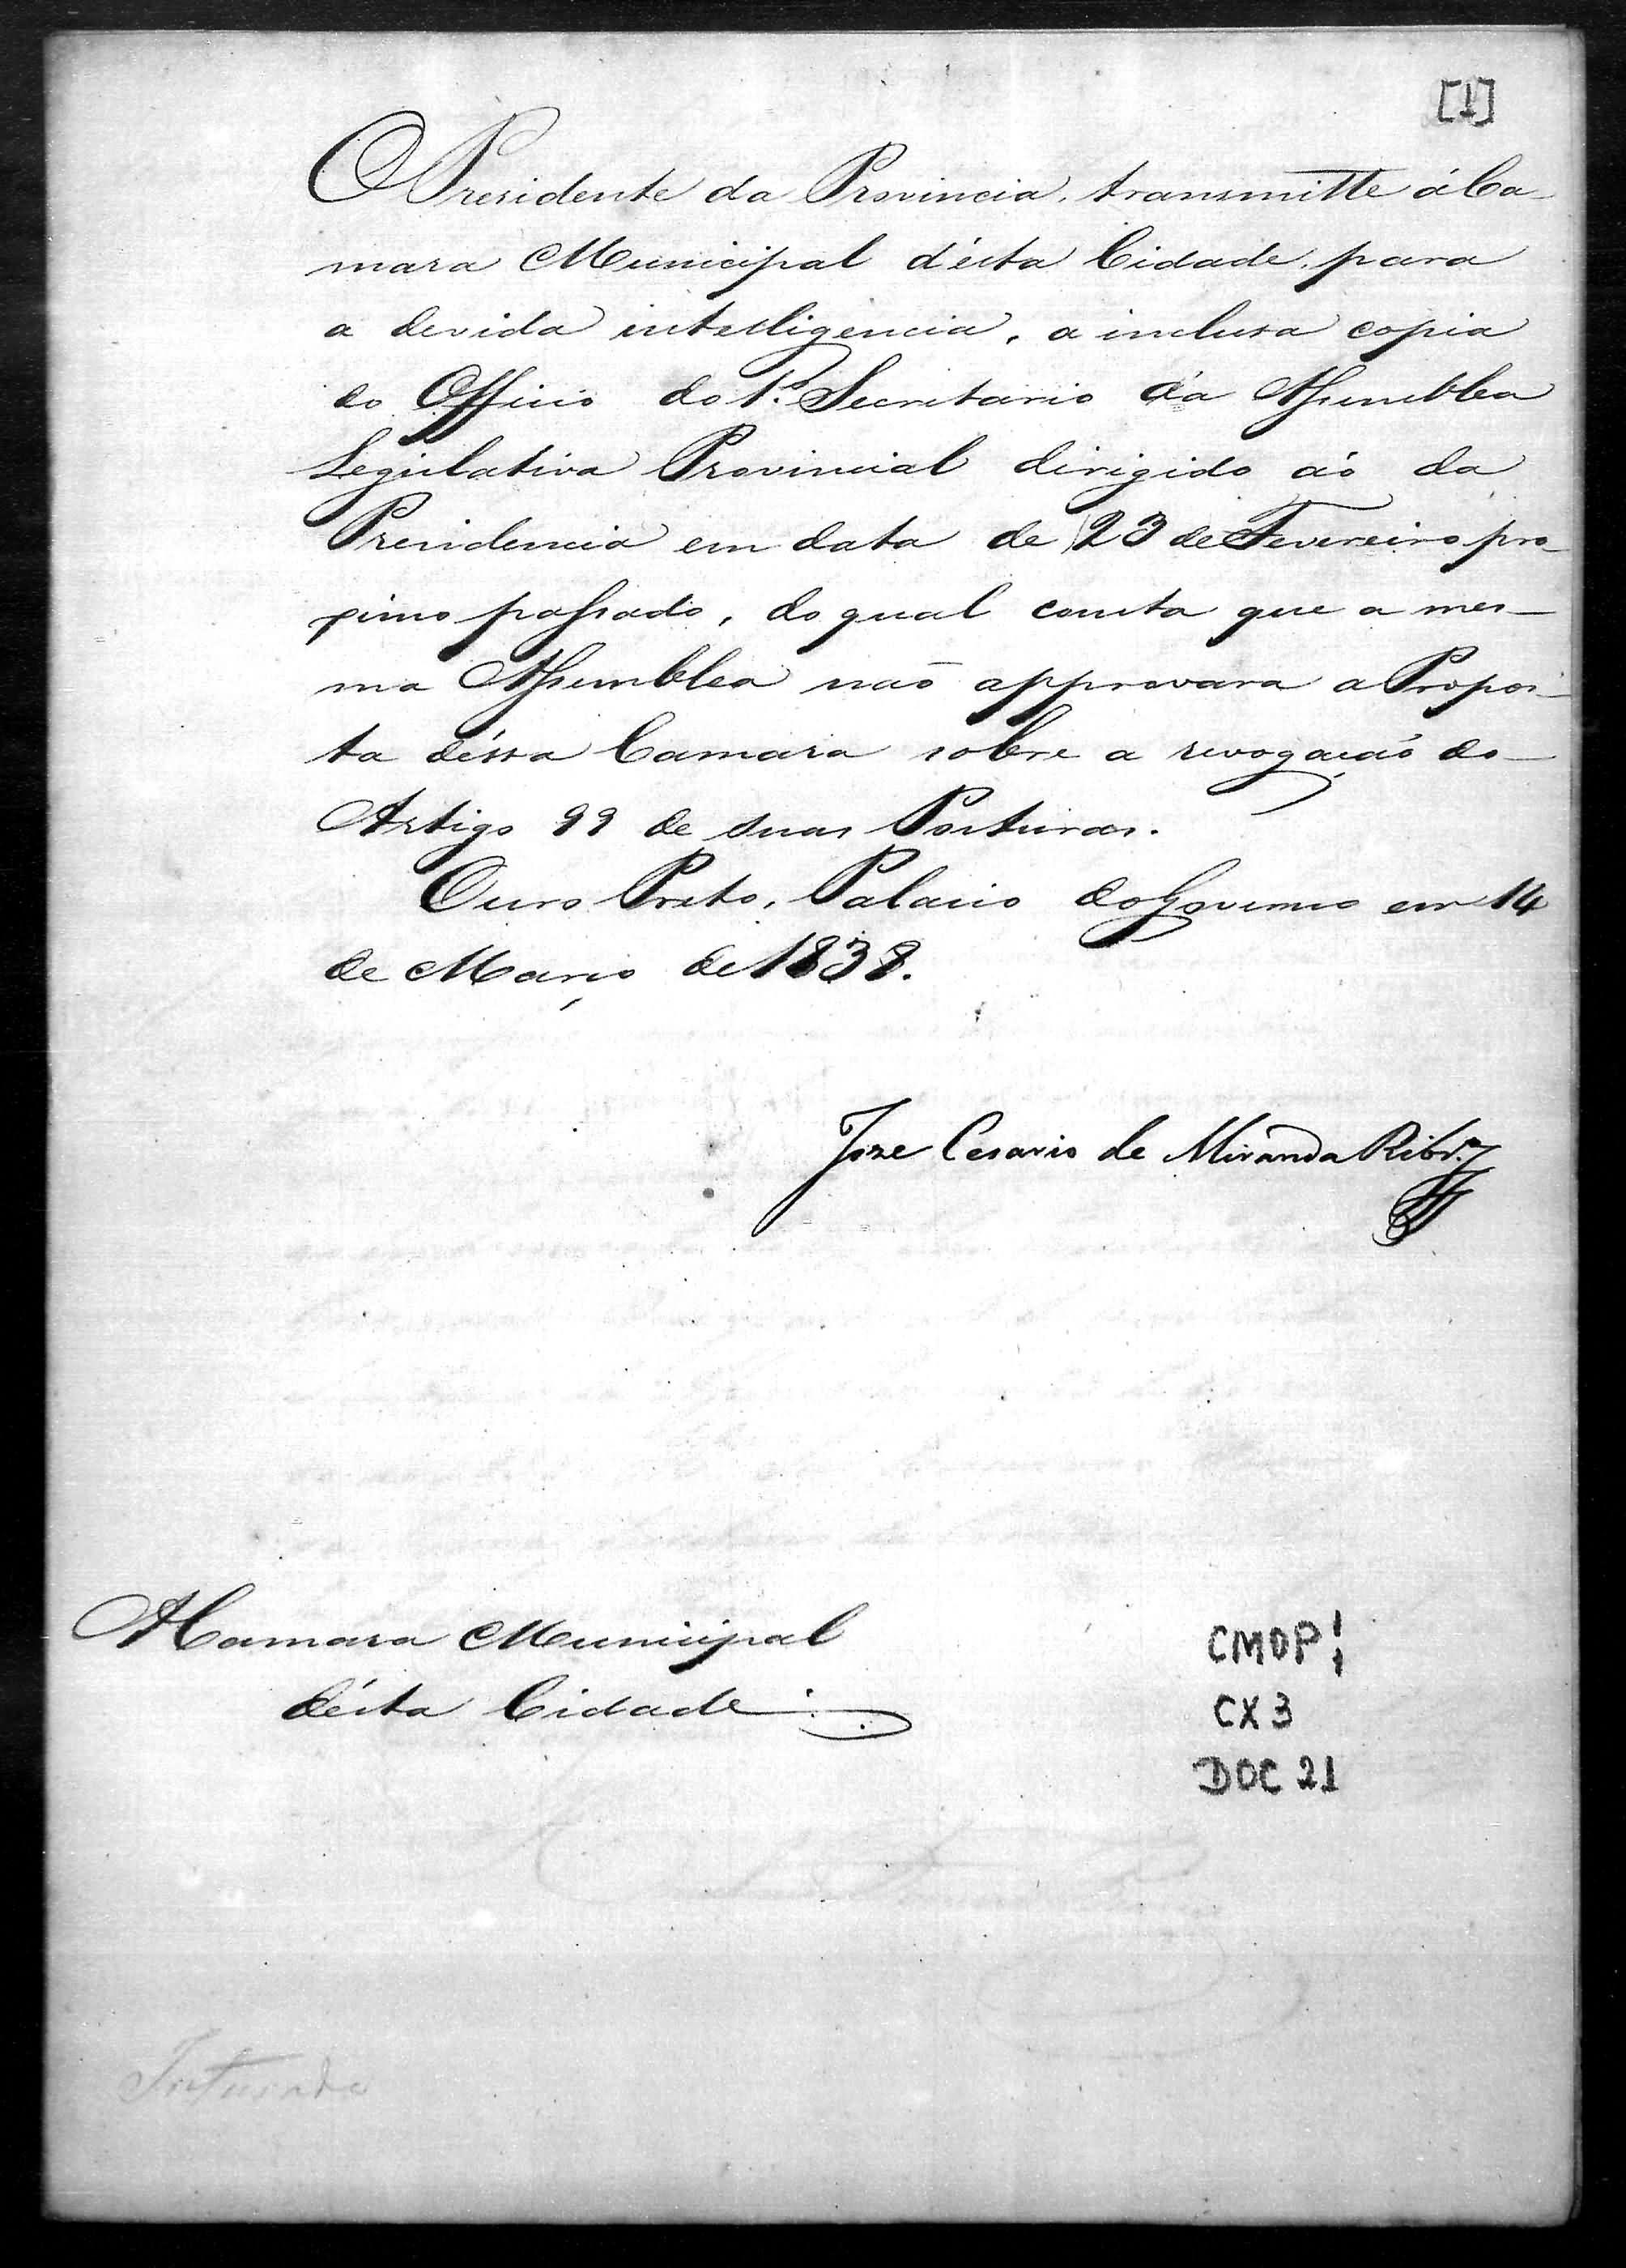 [1]
O Presidente da Provincia, transmitte á Ca-
mara Municipal d'ésta Cidade, para
a devida intelligencia, a inclusa copia
do Officio do 1.º Secretario da Assemblea
Legislativa Provincial dirigido áo da
Presidencia em data de 23 de Fevereiro pro-
ximo passado, do qual consta que a mes-
ma Assemblea naõ approvara a Propos-
ta déssa Camara sobre a revogaçaõ do
Artigo 99 de suas Posturas.
Ouro Preto, Palacio do Governo em 14
de Março de 1838.
Joze Cesario de Miranda Ribr.º
A Camara Municipal
désta Cidade
CMOP
CX 3
DOC 21